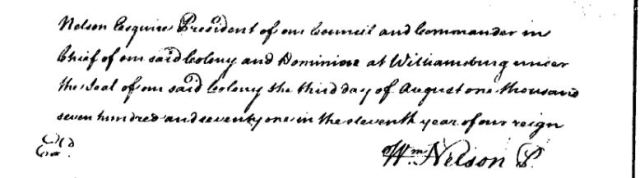 Nelson Esquire President of our Council and Commander in
Chief of our said Colony and Dominion at Williamsburg under
the Seal of our said Colony the third day of August one thousand
seven hundred and seventy one in the eleventh year of our reign
Wm Nelson P.